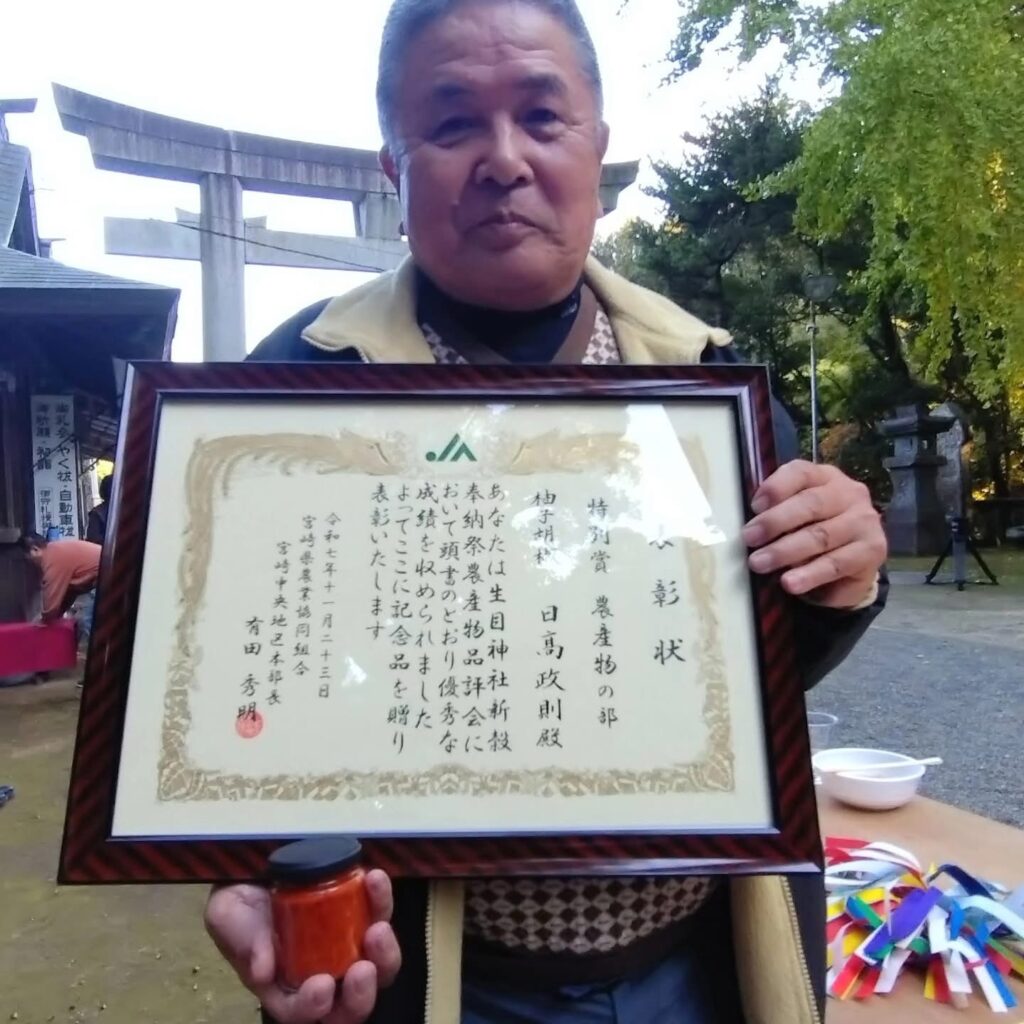 表彰状
特別賞 農産物の部
柚子胡椒 日髙政則殿
あなたは生目神社新穀
奉納祭農産物品評会に
おいて頭書のとおり優秀な
成績を収められました
よってここに記念品を贈り
表彰いたします
令和七年十一月二十三日
宮崎県農業協同組合
宮崎中央地区本部長
有田 秀明
JA